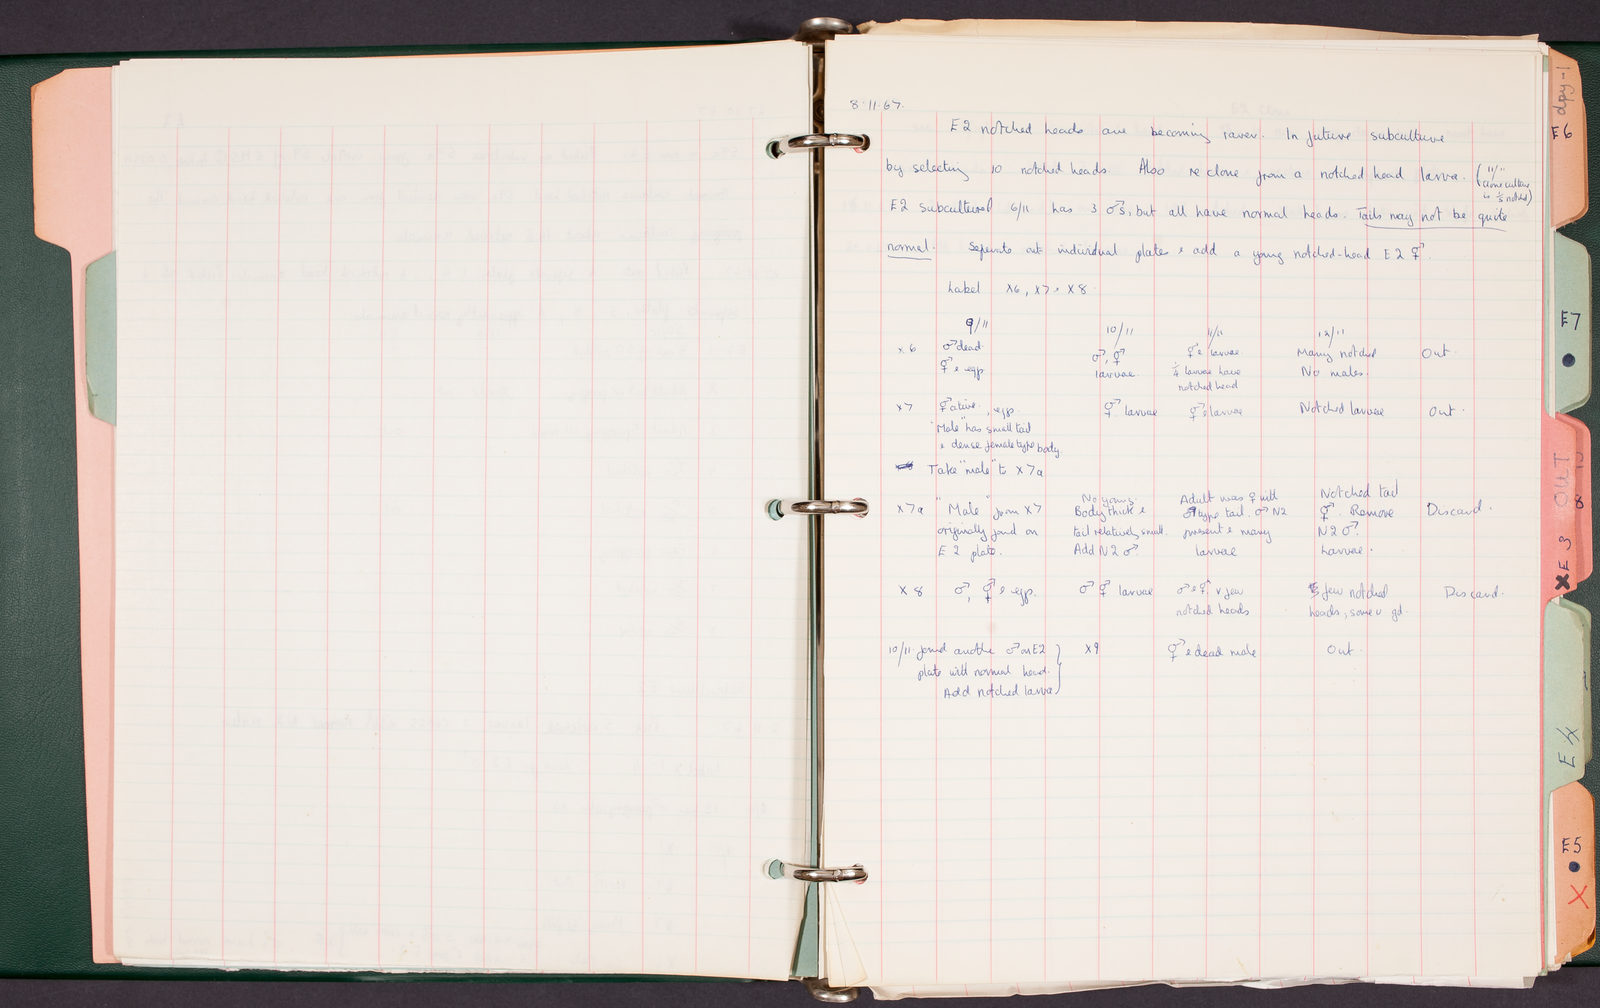 8·11·67.
E2 notched heads are becoming rarer. In future subculture
by selecting 10 notched heads. Also reclone from a notched head larva. (11/11
clone culture
is 1/5 notched)
E2 subcultured 6/11 has 3 ♂s, but all have normal heads. Tails may not be quite
normal. Separate onto individual plates & add a young notched-head E2 ⚥.
Label x6, x7 & x8.
9/11 10/11 11/11 12/11
x6 ♂ dead. ♂, ⚥ ⚥ & larvae. Many notched Out.
⚥ & eggs larvae. 1/4 larvae have No males.
notched head
x7 ⚥ active, eggs. ⚥ larvae ⚥ & larvae Notched larvae Out.
"Male" has small tail
& dense female type body.
Take "male" to x7a
x7a "Male" from x7 No young. Adult was ♀ with Notched tail Discard.
originally found on Body thick & ♂ type tail. ♂ N2 ⚥. Remove
E2 plate. tail relatively small. present & many N2 ♂.
Add N2 ♂ larvae Larvae.
x8 ♂, ⚥ & eggs. ♂ ⚥ larvae ♂ & ⚥. v few few notched Discard.
notched heads heads, some v gd
10/11 found another ♂ on E2 x9 ⚥ & dead male Out.
plate with normal head.
Add notched larva
dpy-1
E6
E7
OUT
8
XE3
E4
E5
X